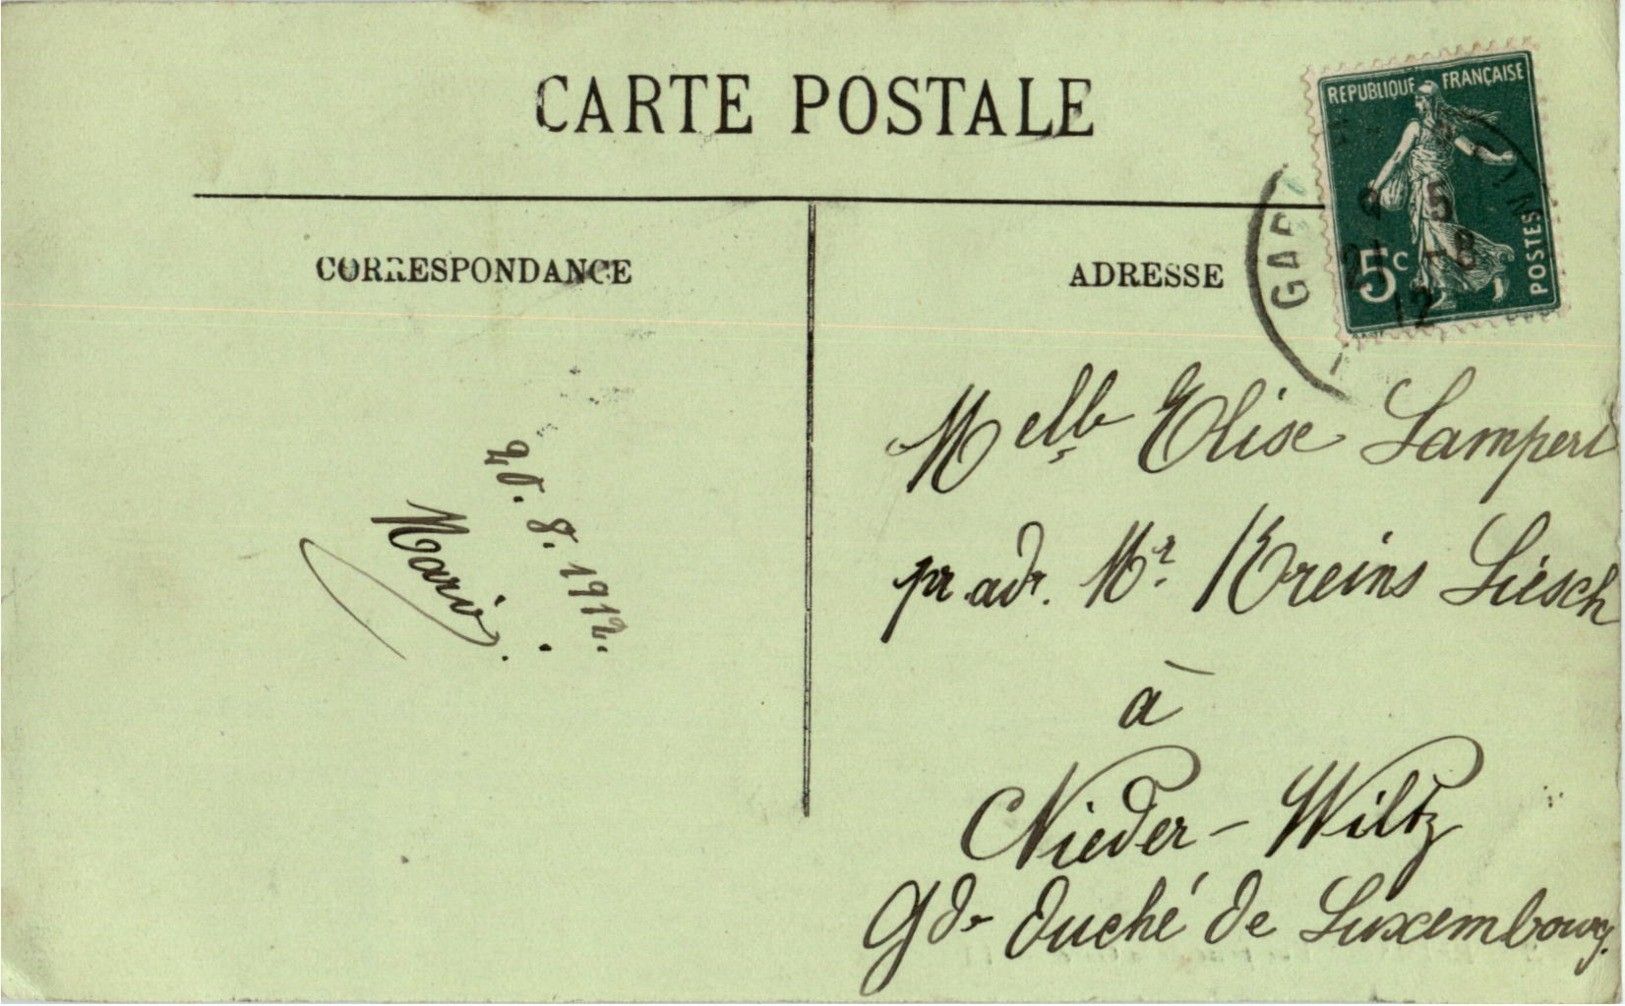 CARTE POSTALE
REPUBLIQUE FRANÇAISE
5c
POSTES
GAR
5
-8
12
CORRESPONDANCE
ADRESSE
20.8.1912.
Marie.
Melle Elise Lampert
pr. adr. Mr. Kreins Liesch
à
Nieder-Wiltz
Gd. Duché de Luxembourg.